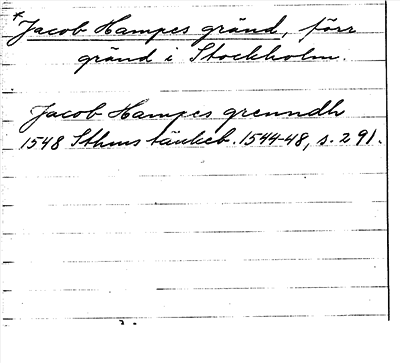 *Jacob Hampes gränd, förr
gränd i Stockholm.
Jacob Hampes grenndh
1548 Sthms tänkeb. 1544-48, s. 291.